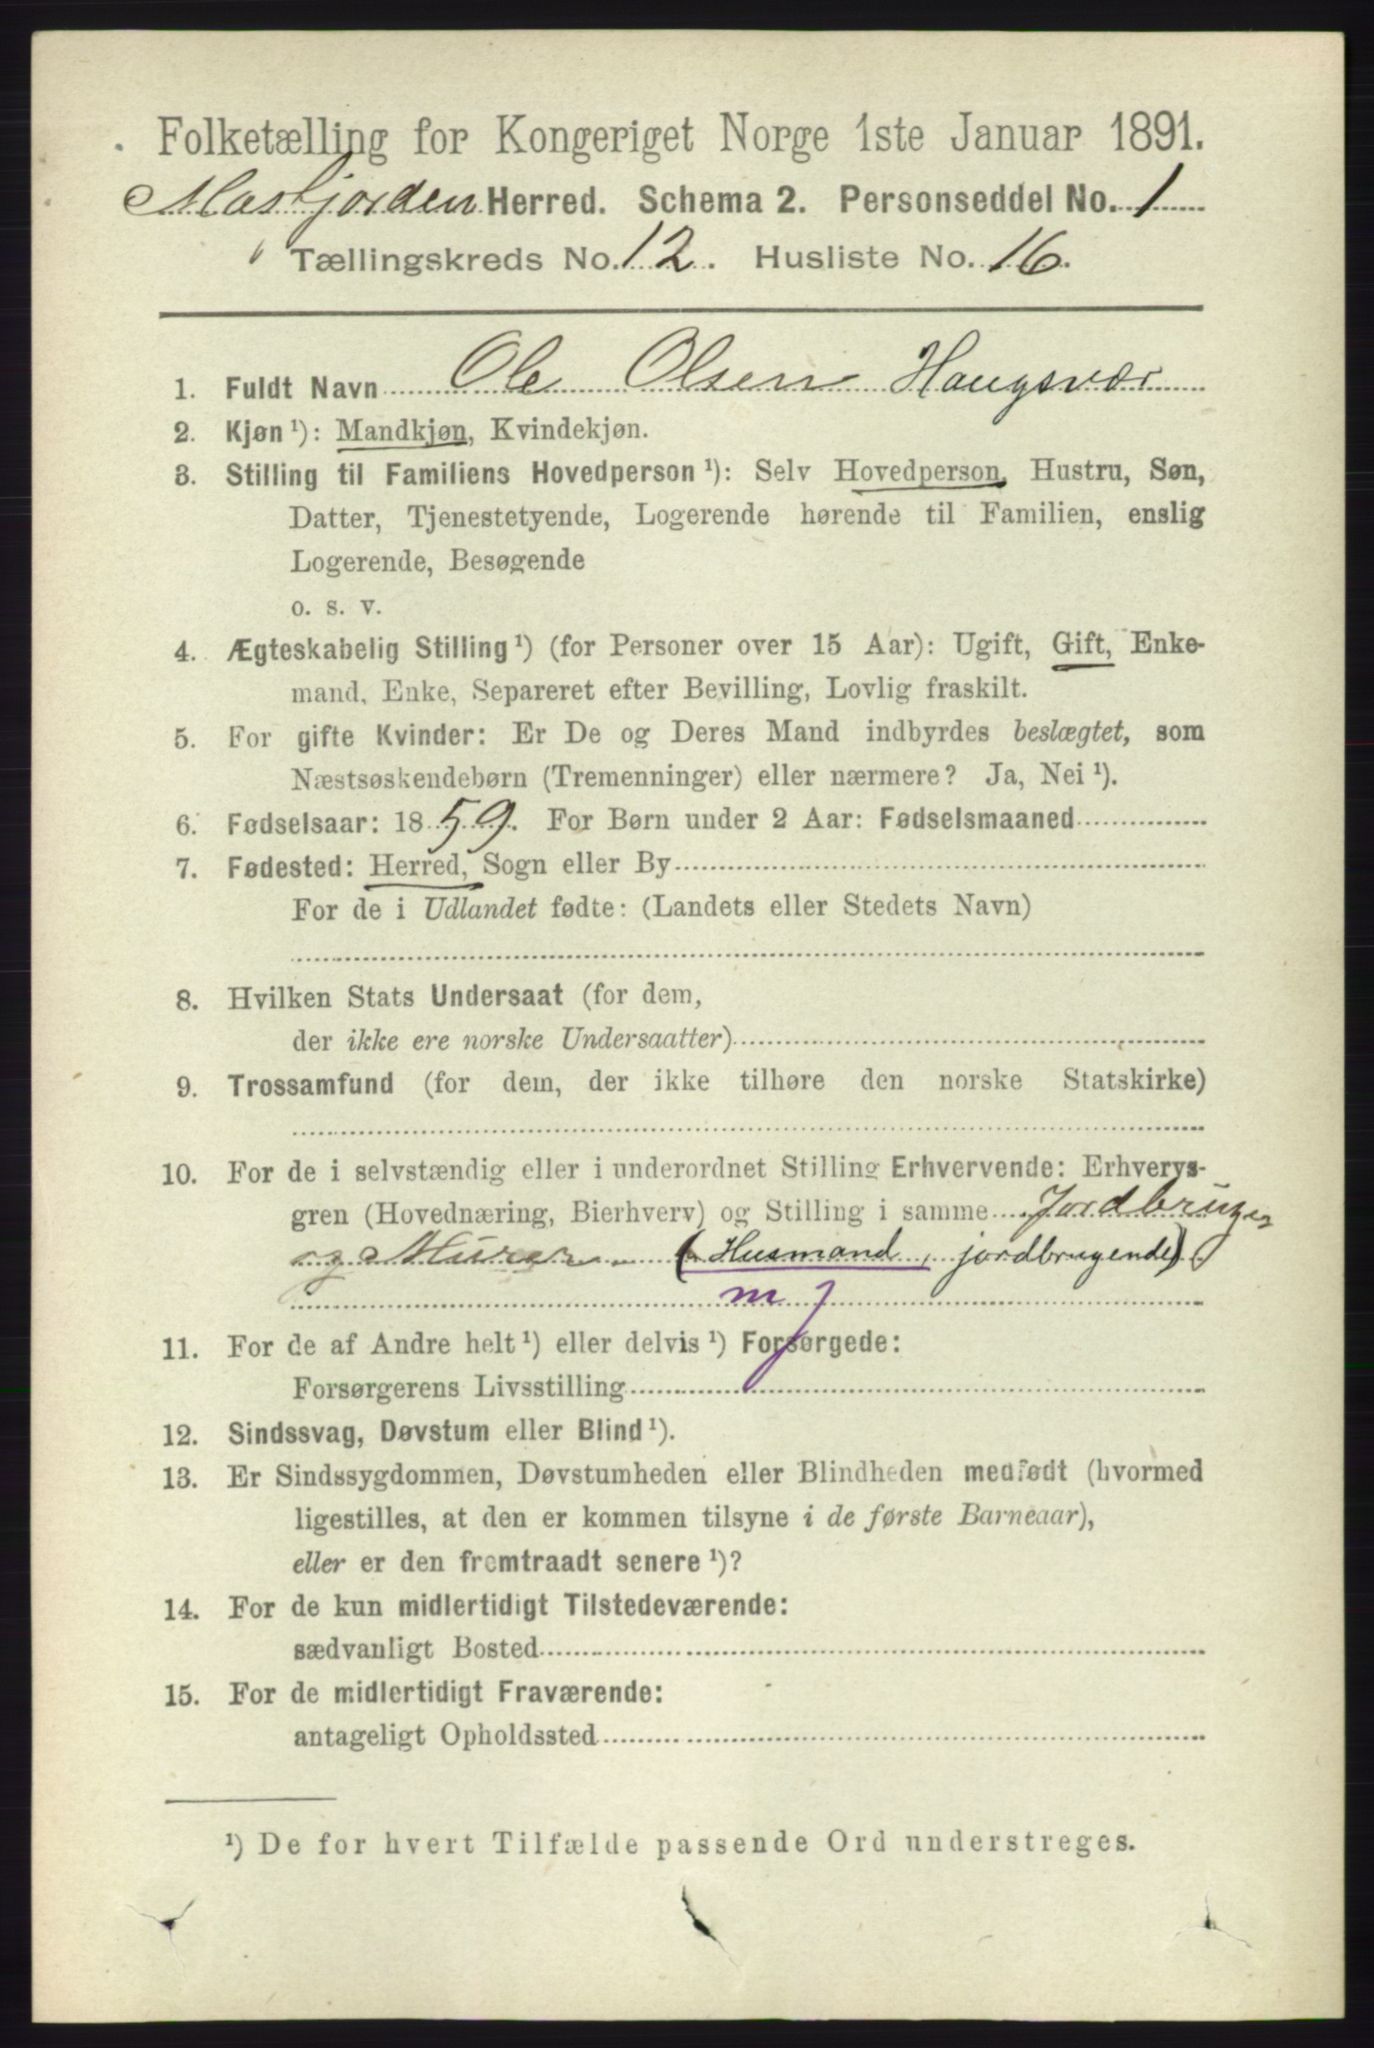 Folketælling for Kongeriget Norge 1ste Januar 1891.
Masfjorden Herred. Schema 2. Personseddel No. 1
Tællingskreds No. 12. Husliste No. 16.
1. Fuldt Navn Ole Olsen Haugsvær
2. Kjøn ¹): Mandkjøn, Kvindekjøn.
3. Stilling til Familiens Hovedperson ¹): Selv Hovedperson, Hustru, Søn,
Datter, Tjenestetyende, Logerende hørende til Familien, enslig
Logerende, Besøgende
o. s. v.
4. Ægteskabelig Stilling ¹) (for Personer over 15 Aar): Ugift, Gift, Enke-
mand, Enke, Separeret efter Bevilling, Lovlig fraskilt.
5. For gifte Kvinder: Er De og Deres Mand indbyrdes beslægtet, som
Næstsøskendebørn (Tremenninger) eller nærmere? Ja, Nei ¹).
6. Fødselsaar: 1859. For Børn under 2 Aar: Fødselsmaaned
7. Fødested: Herred, Sogn eller By
For de i Udlandet fødte: (Landets eller Stedets Navn)
8. Hvilken Stats Undersaat (for dem,
der ikke ere norske Undersaatter)
9. Trossamfund (for dem, der ikke tilhøre den norske Statskirke)
10. For de i selvstændig eller i underordnet Stilling Erhvervende: Erhvervs-
gren (Hovednæring, Bierhverv) og Stilling i samme Jordbruger
og Murer (Husmand, jordbrugende)
m j
11. For de af Andre helt ¹) eller delvis ¹) Forsørgede:
Forsørgerens Livsstilling
12. Sindssvag, Døvstum eller Blind ¹).
13. Er Sindssygdommen, Døvstumheden eller Blindheden medfødt (hvormed
ligestilles, at den er kommen tilsyne i de første Barneaar),
eller er den fremtraadt senere ¹)?
14. For de kun midlertidigt Tilstedeværende:
sædvanligt Bosted
15. For de midlertidigt Fraværende:
antageligt Opholdssted
¹) De for hvert Tilfælde passende Ord understreges.